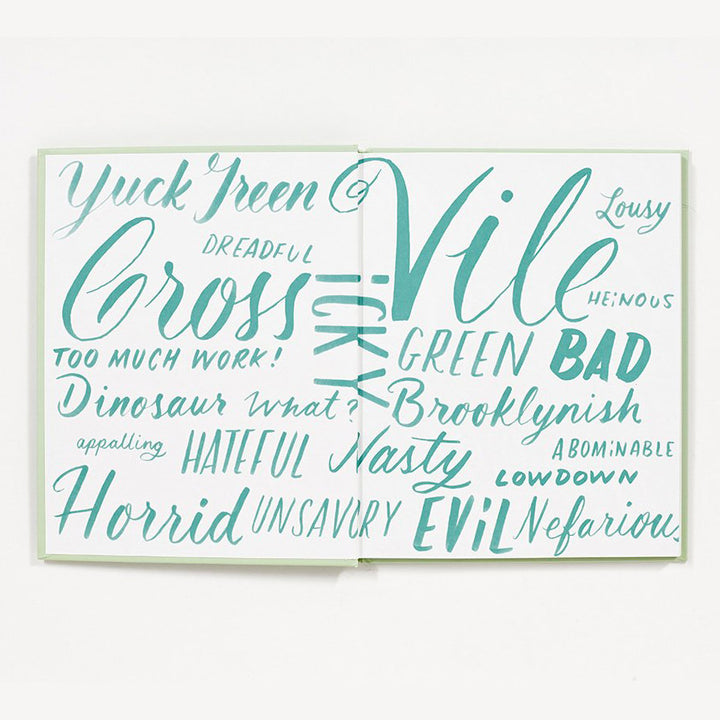 Yuck Green
Vile
Lousy
DREADFUL
Gross
ICKY
HEINOUS
TOO MUCH WORK!
GREEN BAD
Dinosaur What?
Brooklynish
appalling
HATEFUL
Nasty
ABOMINABLE
LOWDOWN
Horrid
UNSAVORY
EViL
Nefariou